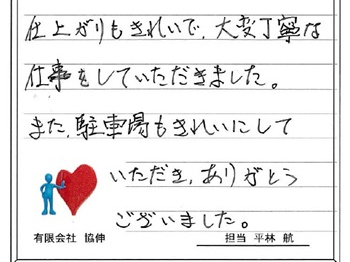 仕上がりもきれいで、大変丁寧な
仕事をしていただきました。
また、駐車場もきれいにして
いただき、ありがとう
ございました。
有限会社 協伸
担当 平林 航